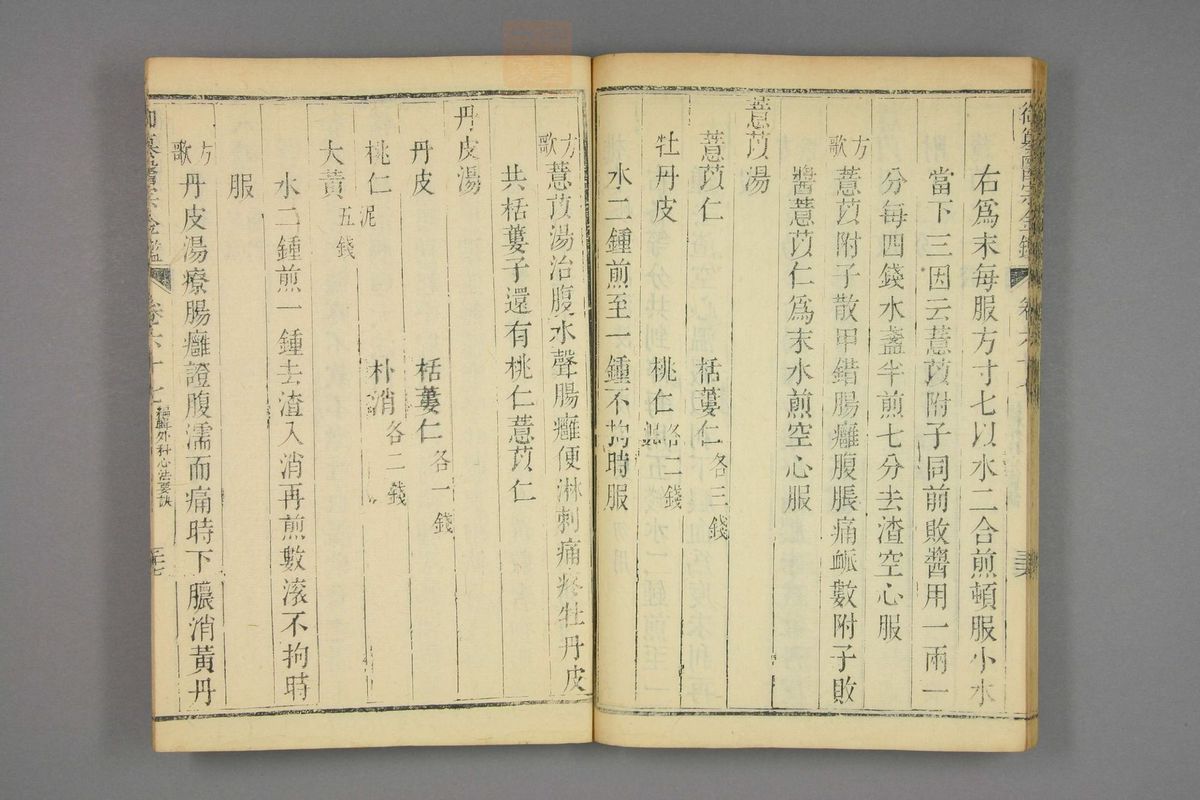 右爲末每服方寸匕以水二合煎頓服小水
當下三因云薏苡附子同前敗醬用一兩一
分每四錢水盞半煎七分去渣空心服
方歌 薏苡附子散甲錯腸癰腹脹痛脈數附子敗
醬薏苡仁爲末水煎空心服
薏苡湯
薏苡仁 栝蔞仁各三錢
牡丹皮 桃仁各二錢
水二鍾煎至一鍾不拘時服
方歌 薏苡湯治腹水聲腸癰便淋刺痛疼牡丹皮
共栝蔞子還有桃仁薏苡仁
丹皮湯
丹皮 栝蔞仁各一錢
桃仁泥 朴消各二錢
大黃五錢
水二鍾煎一鍾去渣入消再煎數滾不拘時
服
方歌 丹皮湯療腸癰證腹濡而痛時下膿消黃丹
卷六十七 編輯外科心法要訣